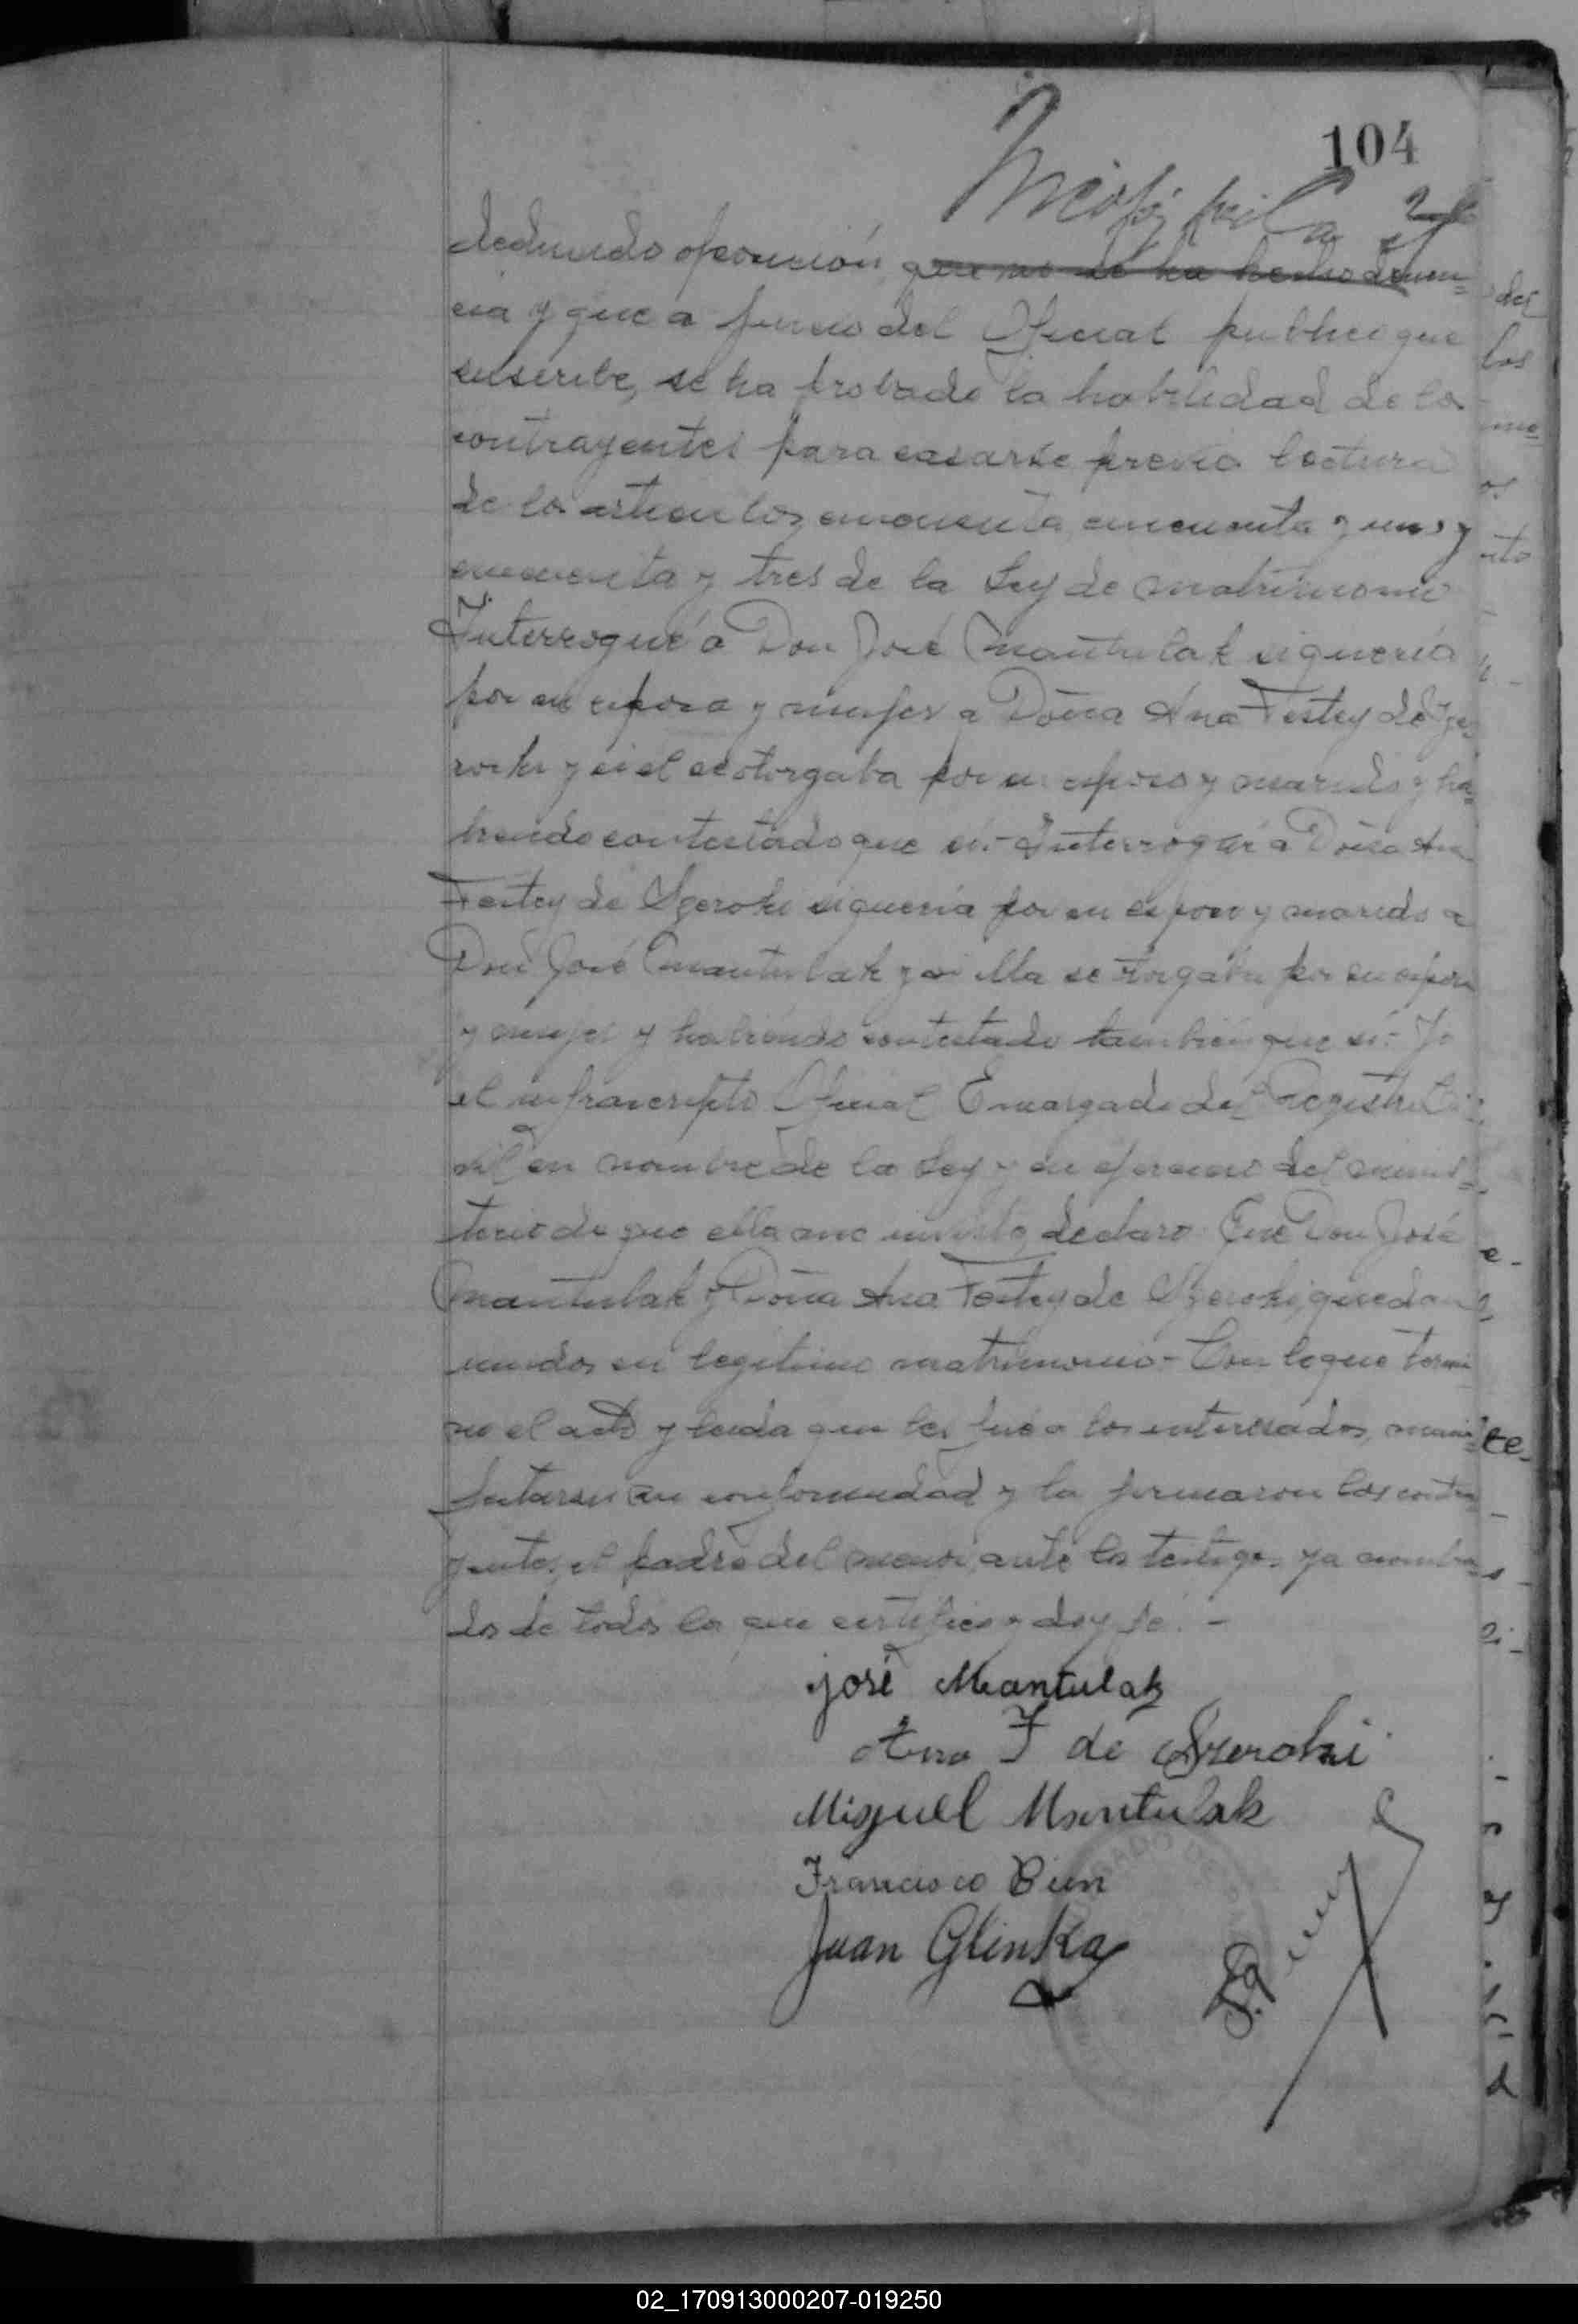 104
deducido oposición, que no se ha hecho denun=
cia y que a juicio del Oficial publico que
suscribe, se ha probado la habilidad de los
contrayentes para casarse previa lectura
de los articulos cincuenta, cincuenta y uno y
cincuenta y tres de la Ley de matrimonio
Interrogué a Don José Mantulak si quería
por su esposa y mujer a Doña Ana Festey de Sze
roski y si el se otorgaba por su esposo y marido y ha=
biendo contestado que sí.- Interrogué a Doña Ana
Festey de Szeroki si quería por su esposo y marido a
Don José Mantulak y si ella se otorgaba por su esposa
y mujer y habiendo contestado también que sí.- Yo
el infrascripto Oficial Encargado del Registro Ci
vil en nombre de la Ley y en ejercicio del minis=
terio de que ella me inviste, declaro: Que Don José
Mantulak y Doña Ana Festey de Szeroki, quedan
unidos en legitimo matrimonio.- Con lo que termi
nó el acto y leida que les fué a los interesados, mani=
festaron su conformidad y la firmaron los contra
yentes, el padre del menor, ante los testigos ya nombra=
dos de todo lo que certifico y doy fé.-
josé Mantulak
Ana F de Szeroki
Miguel Mantulak
Francisco Bien
Juan Glinka
02_170913000207-019250